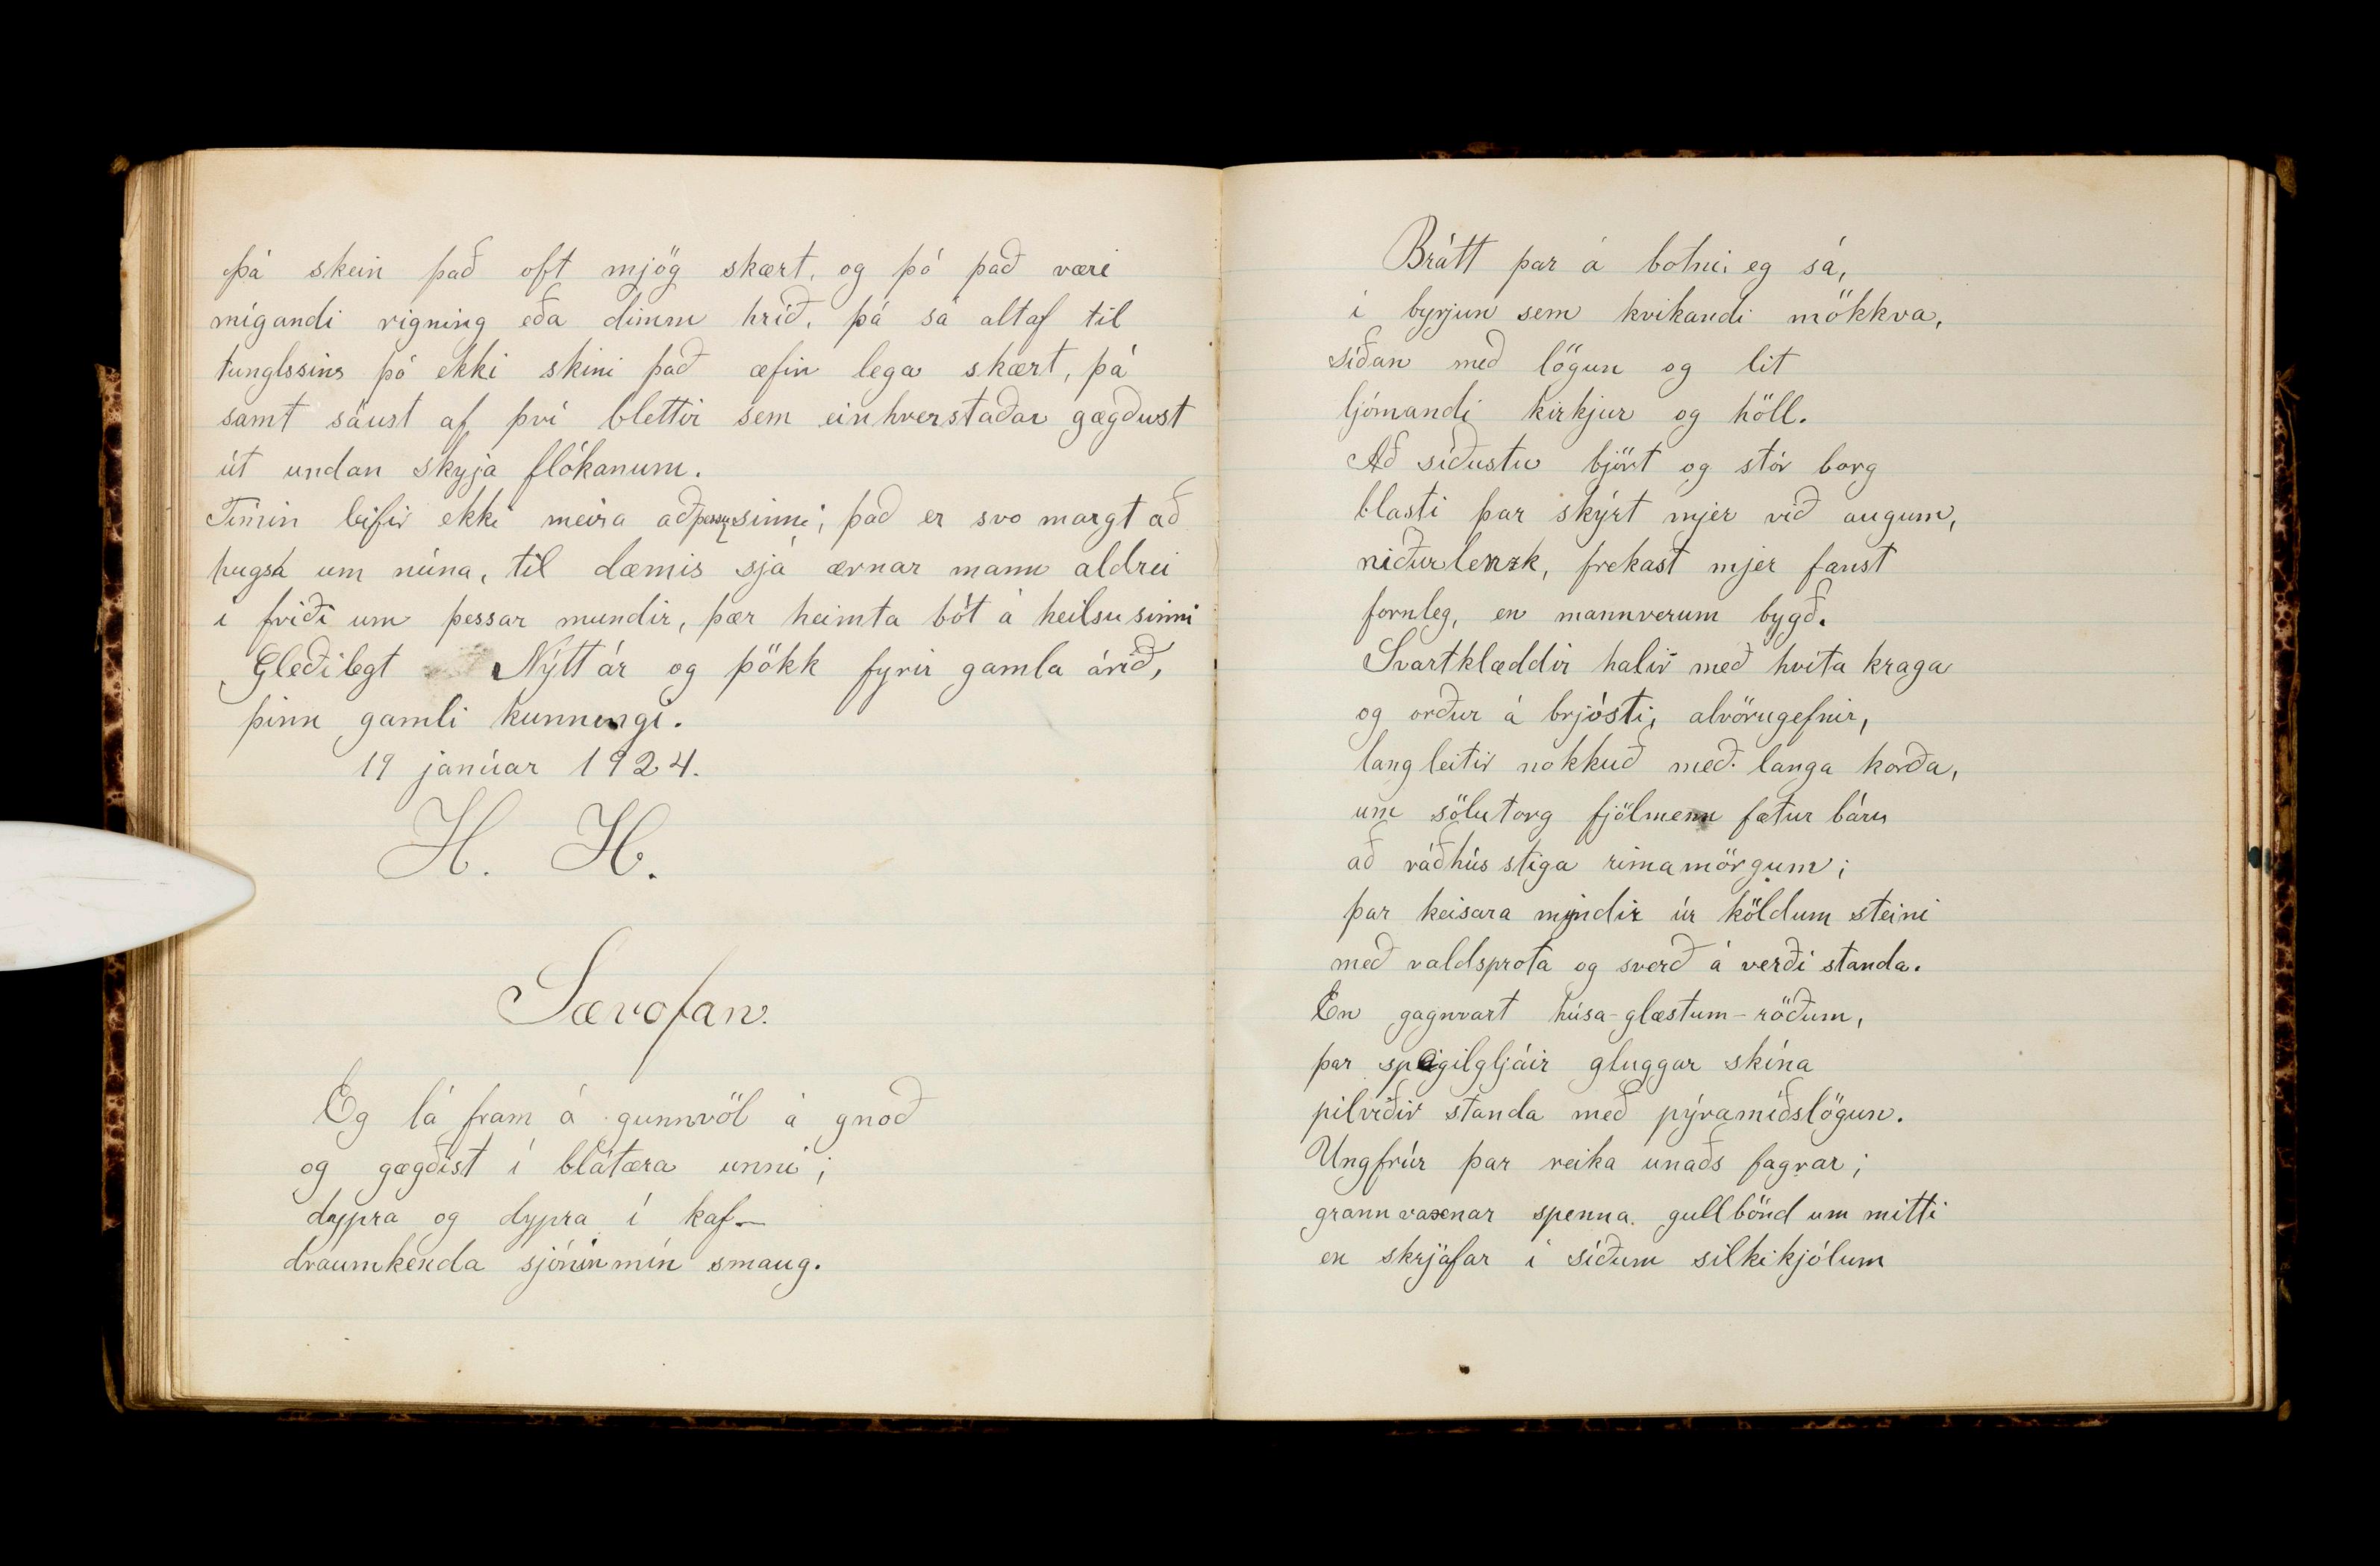 þá skein það oft mjög skært, og þó það væri
mígandi rigning eða dimm hríð, þá sá altaf til
tunglssins þó ekki skini það æfin lega skært, þá
samt sáust af því blettir sem einhverstaðar gægðust
út undan skyja flókanum.
Tímin leifir ekki meira að þessu sinni, það er svo margt að
hugsa um núna, til dæmis sjá ærnar mann aldrei
i friði um þessar mundir, þær heimta bót á heilsu sinni
Gleðilegt Nýtt ár og þökk fyrir gamla árið,
þinn gamli kunningi.
19 janúar 1924.
H. H.
Sævofan.
Eg lá fram á gunnvöl á gnoð
og gægðist í blátæra unni;
dypra og dypra í kaf—
draumkenda sjónin mín smaug.
Brátt þar á botni eg sá,
i byrjun sem kvikandi mökkva,
síðan með lögun og lit
ljómandi kirkjur og höll.
Að síðustu björt og stór borg
blasti þar skýrt mjer við augum,
niðurlenzk, frekast mjer fanst
fornleg, en mannverum bygð.
Svartklæddir halir með hvíta kraga
og orður á brjósti, alvörugefnir,
langleitir nokkuð með langa korða,
um sölutorg fjölmenn fætur báru
að ráðhús stiga rimamörgum;
þar keisara myndir úr köldum steini
með valdsprota og sverð á verði standa.
En gagnvart húsa-glæstum-röðum,
þar spegilgljáir gluggar skína
pílviðir standa með pýramíðslögun.
Ungfrúr þar reika unaðs fagrar;
grannvaxnar spenna gullbönd um mitti
en skrjáfar í síðum silkikjólum